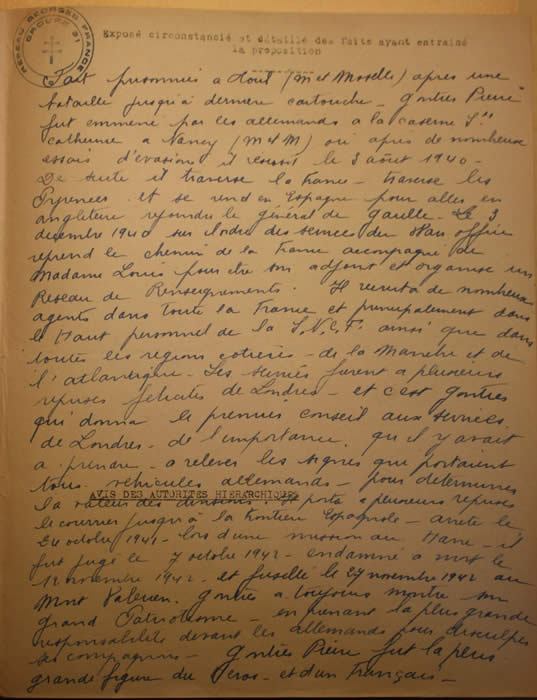 RESEAU GEORGES FRANCE
GROUPE 31
Exposé circonstancié et détaillé des faits ayant entrainé
la proposition
Fait prisonnier a Toul (M et Moselle) après une
bataille jusqu'à dernière cartouche - Gontiès Pierre
fut emmené par les allemands a la caserne Ste
Catherine a Nancy (M et M) où après de nombreux
essais d'évasions il réussit le 3 août 1940 -
De suite il traverse la France - traverse les
Pyrenees et se rend en Espagne pour aller en
angleterre rejoindre le général de Gaulle - Le 3
decembre 1940 sur l'ordre des services du War office
reprend le chemin de la France accompagné de
Madame Louis pour etre son adjoint et organise un
Reseau de Renseignements. Il recruta de nombreux
agents dans toute la France et principalement dans
le Haut personnel de la S.N.C.F. ainsi que dans
toutes les régions cotieres - de la Manche et de
l'atlantique - Ses services furent a plusieurs
reprises félicités de Londres - et c'est Gontiès
qui donna le premier conseil aux services
de Londres - de l'importance, qu'il y avait
a prendre - a relever les signes que portaient
tous véhicules allemands - pour déterminer
AVIS DES AUTORITES HIERARCHIQUES
la valeur des divisions. Il porta a plusieurs reprises
le courrier jusqu'à la frontière Espagnole - arrêté le
24 octobre 1941 - lors d'une mission au Havre - il
fut jugé le 7 octobre 1942 - condamné a mort le
12 novembre 1942 - et fusillé le 27 novembre 1942 au
Mont Valerien. Gontiès a toujours montré son
grand Patriotisme - en prenant la plus grande
responsabilité devant les allemands pour disculper
ses compagnons - Gontiès Pierre fut la plus
grande figure du Heros - et d'un Français -